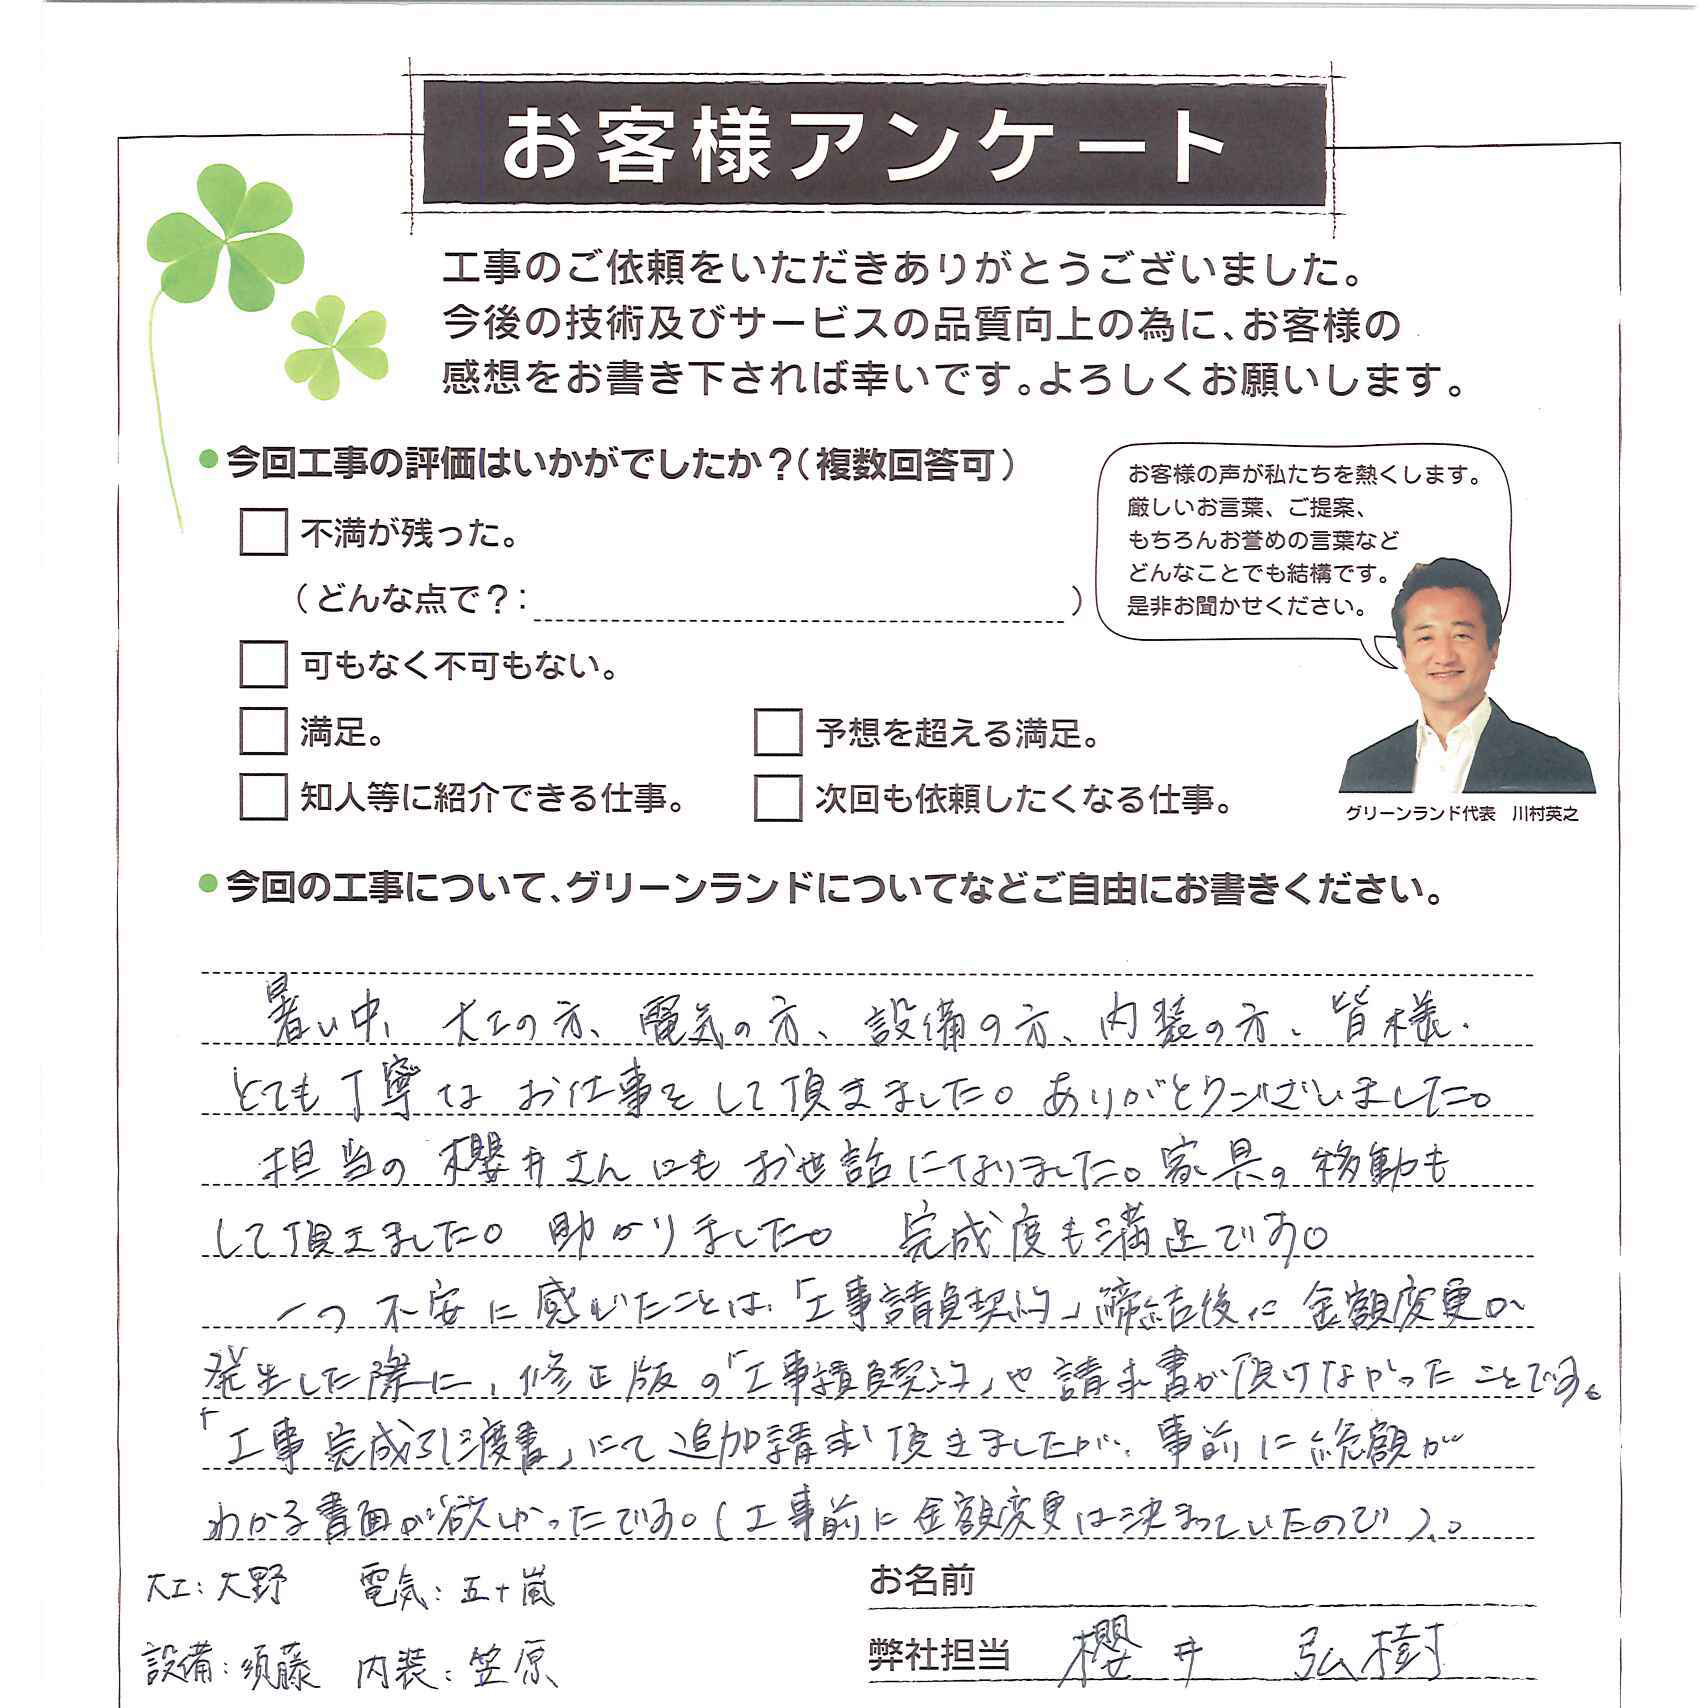 お客様アンケート
工事のご依頼をいただきありがとうございました。
今後の技術及びサービスの品質向上の為に、お客様の
感想をお書き下されば幸いです。よろしくお願いします。
●今回工事の評価はいかがでしたか？（複数回答可）
不満が残った。
（どんな点で？：　　　　）
可もなく不可もない。
満足。　予想を超える満足。
知人等に紹介できる仕事。　次回も依頼したくなる仕事。
お客様の声が私たちを熱くします。
厳しいお言葉、ご提案、
もちろんお誉めの言葉など
どんなことでも結構です。
是非お聞かせください。
グリーンランド代表　川村英之
●今回の工事について、グリーンランドについてなどご自由にお書きください。
暑い中、大工の方、電気の方、設備の方、内装の方、皆様、
とても丁寧なお仕事をして頂きました。ありがとうございました。
担当の櫻井さんにもお世話になりました。家具の移動も
して頂きました。助かりました。完成度も満足です。
一つ不安に感じたことは、「工事請負契約」締結後に金額変更が
発生した際に、修正版の「工事請負契約」や請求書が頂けなかったことです。
「工事完成引渡書」にて追加請求頂きましたが、事前に総額が
わかる書面が欲しかったです。（工事前に金額変更は決まっていたので）。
大工：大野　電気：五十嵐
設備：須藤　内装：笠原
お名前
弊社担当　櫻井　弘樹